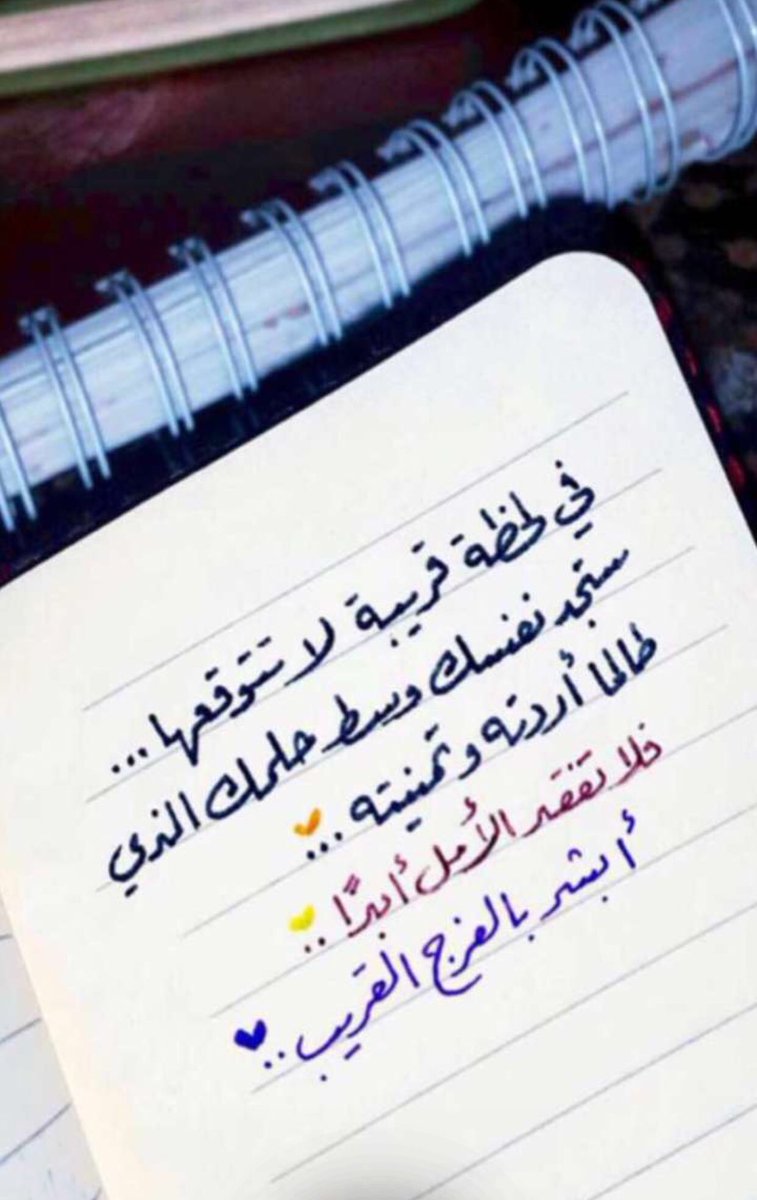 في لحظة قريبة لا تتوقعها ...
ستجد نفسك وسط حلمك الذي
طالما أردته وتمنيته ...
فلا تفقد الأمل أبدًا ..
أبشر بالفرج القريب ..